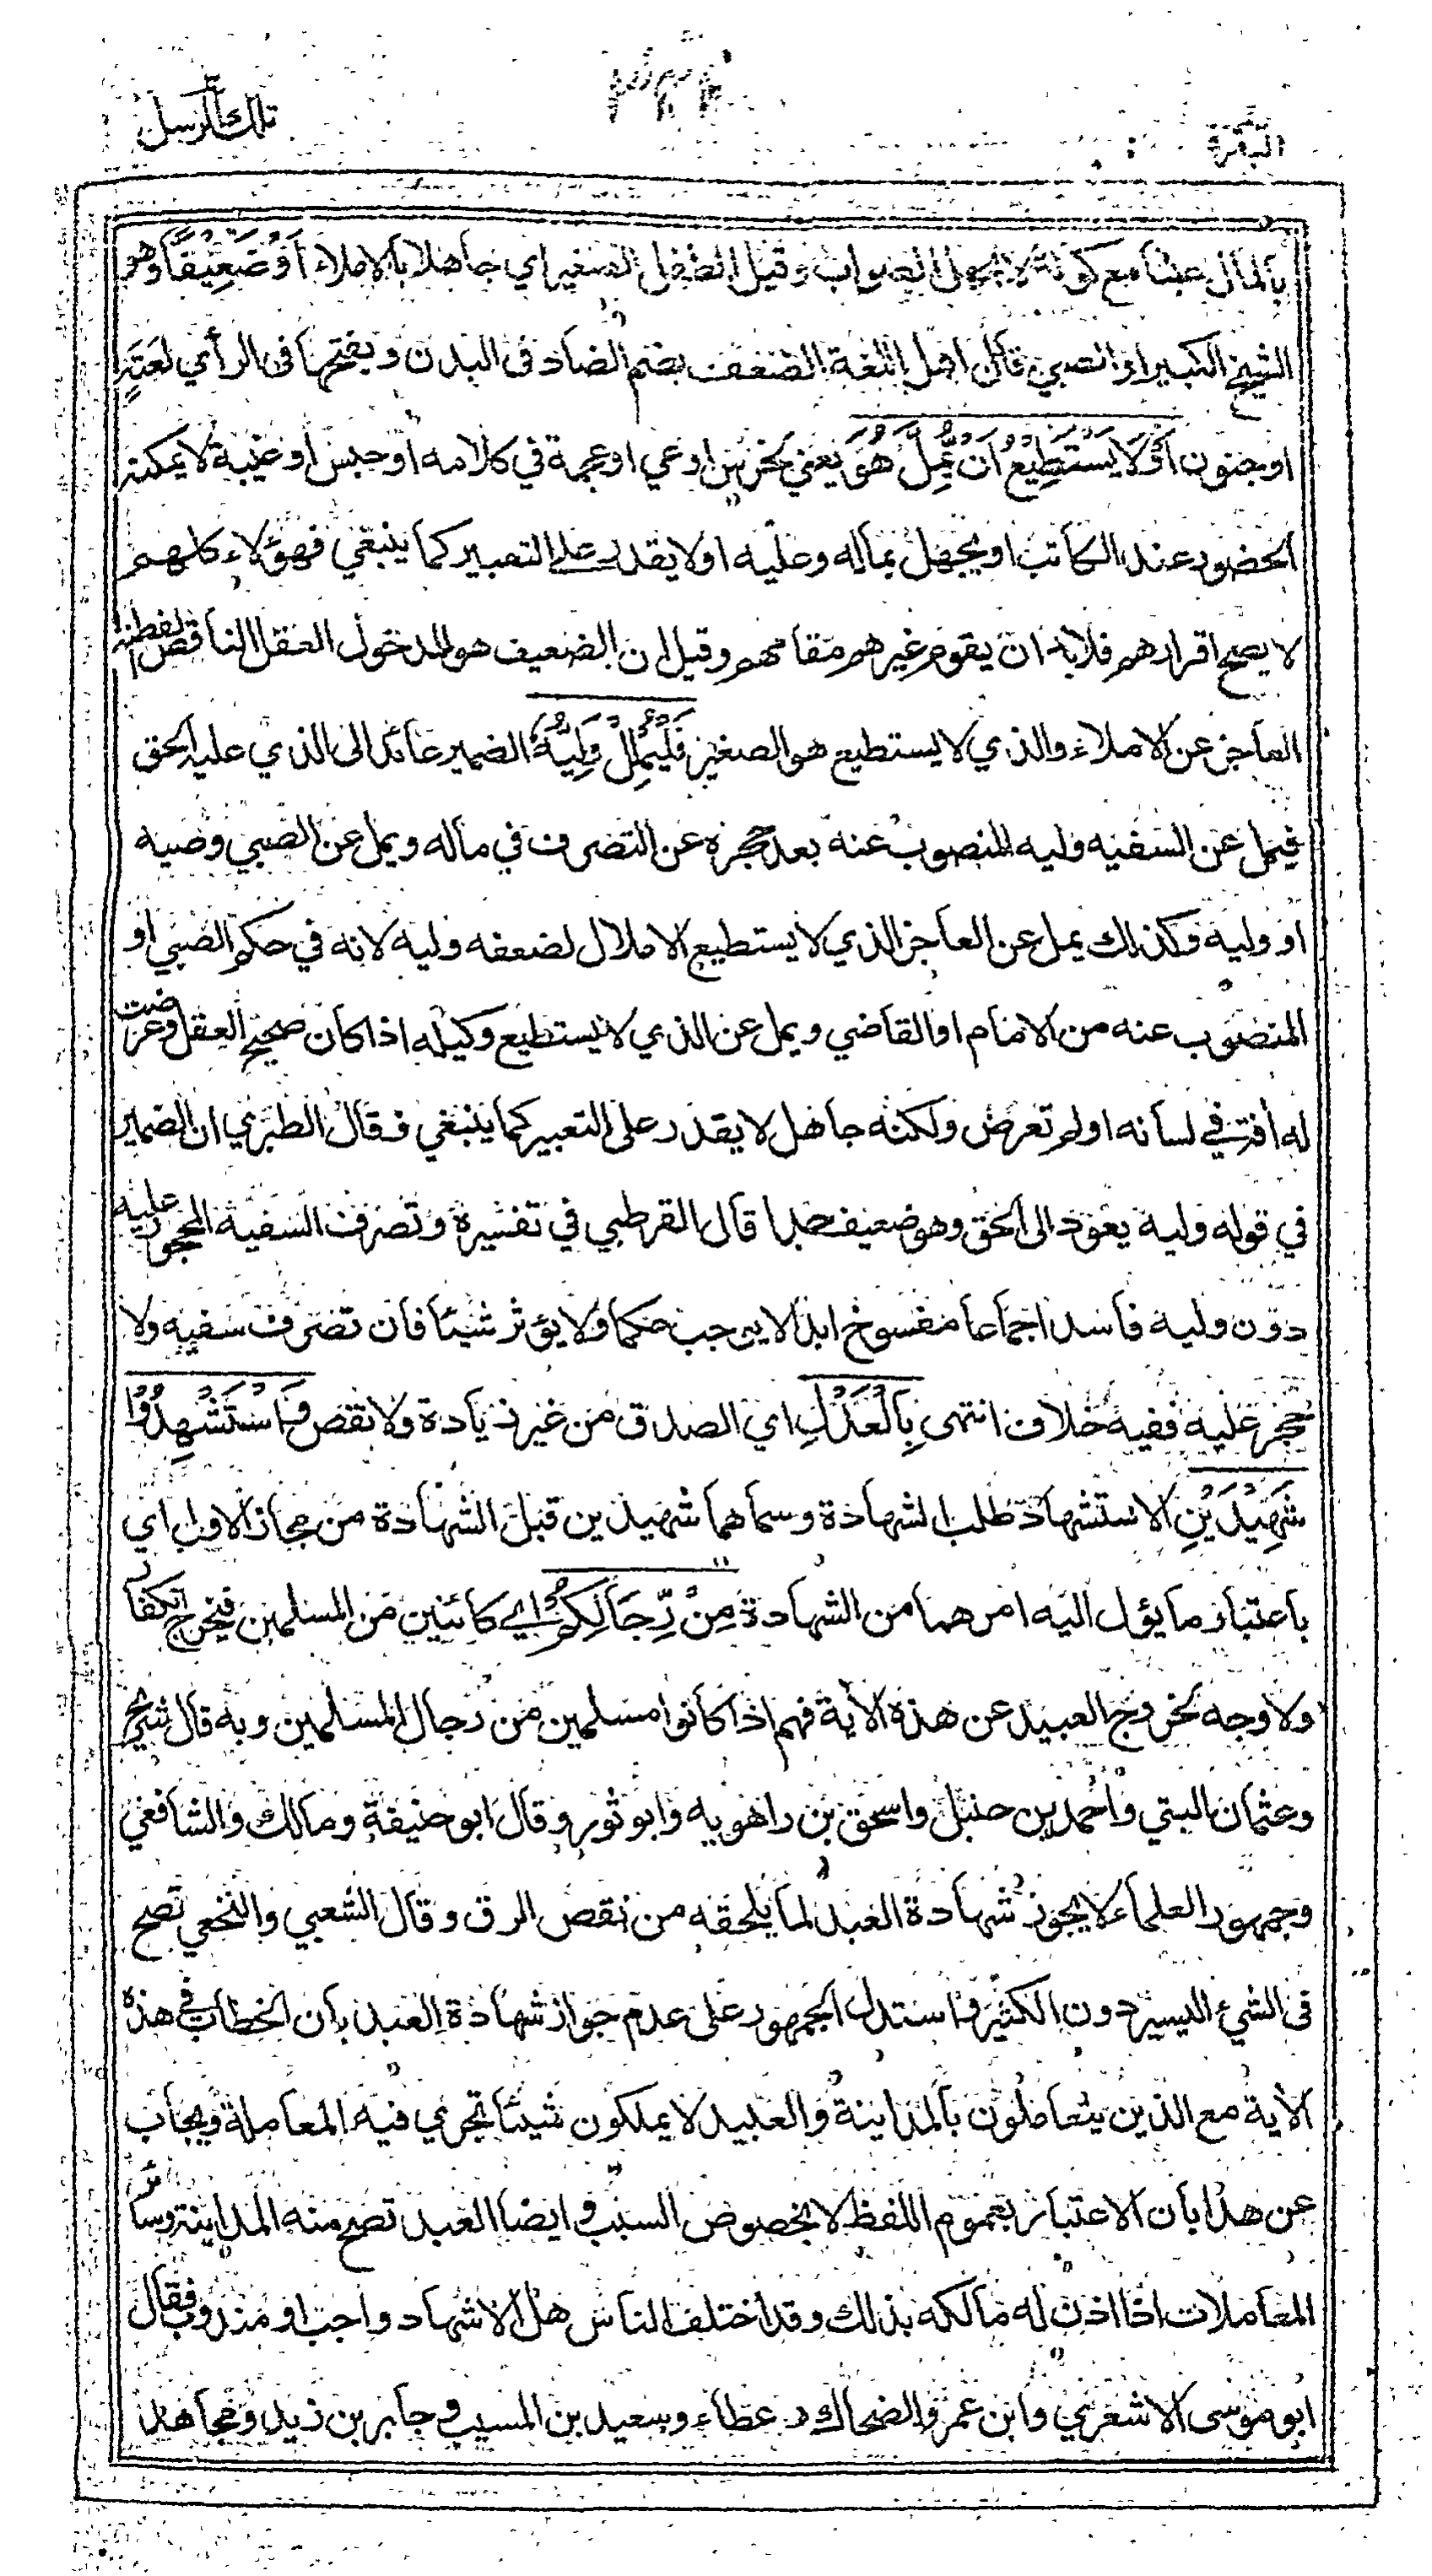 البقرة
تلك الرسل
بالمال عبثا مع كونه لا يجهل الصواب وقيل الطفل الصغير اي جاهلا بالاملاء أَوْ ضَعِيفًا وهو
الشيخ الكبير او الصبي قال اهل اللغة الضعف بضم الضاد في البدن وبفتحها في الرأي لعته
او جنون أَوْ لَا يَسْتَطِيعُ أَن يُّمِلَّ هُوَ يعني لخرس او عي او عجمة في كلامه او حبس او غيبة لا يمكنه
الحضور عند الكاتب او يجهل بماله وعليه او لا يقدر على التعبير كما ينبغي فهؤلاء كلهم
لا يصح اقرارهم فلا بد ان يقوم غيرهم مقامهم وقيل ان الضعيف هو المدخول العقل الناقص الفطنة
العاجز عن الاملاء والذي لا يستطيع هو الصغير فَلْيُمْلِلْ وَلِيُّهُ الضمير عائد الى الذي عليه الحق
فيمل عن السفيه وليه المنصوب عنه بعد حجره عن التصرف في ماله ويمل عن الصبي وصيه
او وليه وكذلك يمل عن العاجز الذي لا يستطيع الاملال لضعفه وليه لانه في حكم الصبي او
المنصوب عنه من الامام او القاضي ويمل عن الذي لا يستطيع وكيله اذا كان صحيح العقل وعرضت
له افة في لسانه او لم تعرض ولكنه جاهل لا يقدر على التعبير كما ينبغي وقال الطبري ان الضمير
في قوله وليه يعود الى الحق وهو ضعيف جدا قال القرطبي في تفسيره وتصرف السفيه المحجور عليه
دون وليه فاسد اجماعا مفسوخ ابدا لا يوجب حكما ولا يؤثر شيئا فان تصرف سفيه ولا
حجر عليه ففيه خلاف انتهى بِالْعَدْلِ اي الصدق من غير زيادة ولا نقص وَاسْتَشْهِدُوا
شَهِيدَيْنِ الاستشهاد طلب الشهادة وسماهما شهيدين قبل الشهادة من مجاز الاول اي
باعتبار ما يؤل اليه امرهما من الشهادة مِنْ رِّجَالِكُمْ اي كائنين من المسلمين فيخرج الكفار
ولا وجه لخروج العبيد عن هذه الأية فهم اذا كانوا مسلمين من رجال المسلمين وبه قال شريح
وعثمان البتي واحمد بن حنبل واسحق بن راهويه وابو ثور وقال ابو حنيفة ومالك والشافعي
وجمهور العلماء لا يجوز شهادة العبد لما يلحقه من نقص الرق وقال الشعبي والنخعي تصح
في الشيء اليسير دون الكثير واستدل الجمهور على عدم جواز شهادة العبد بان الخطاب في هذه
الأية مع الذين يتعاملون بالمداينة والعبيد لا يملكون شيئا تجري فيه المعاملة ويجاب
عن هذا بان الاعتبار بعموم اللفظ لا بخصوص السبب وايضا العبد تصح منه المداينة وسائر
المعاملات اذا اذن له مالكه بذلك وقد اختلف الناس هل الاشهاد واجب او مندوب فقال
ابو موسى الاشعري وابن عمر والضحاك وعطاء وسعيد بن المسيب وجابر بن زيد ومجاهد